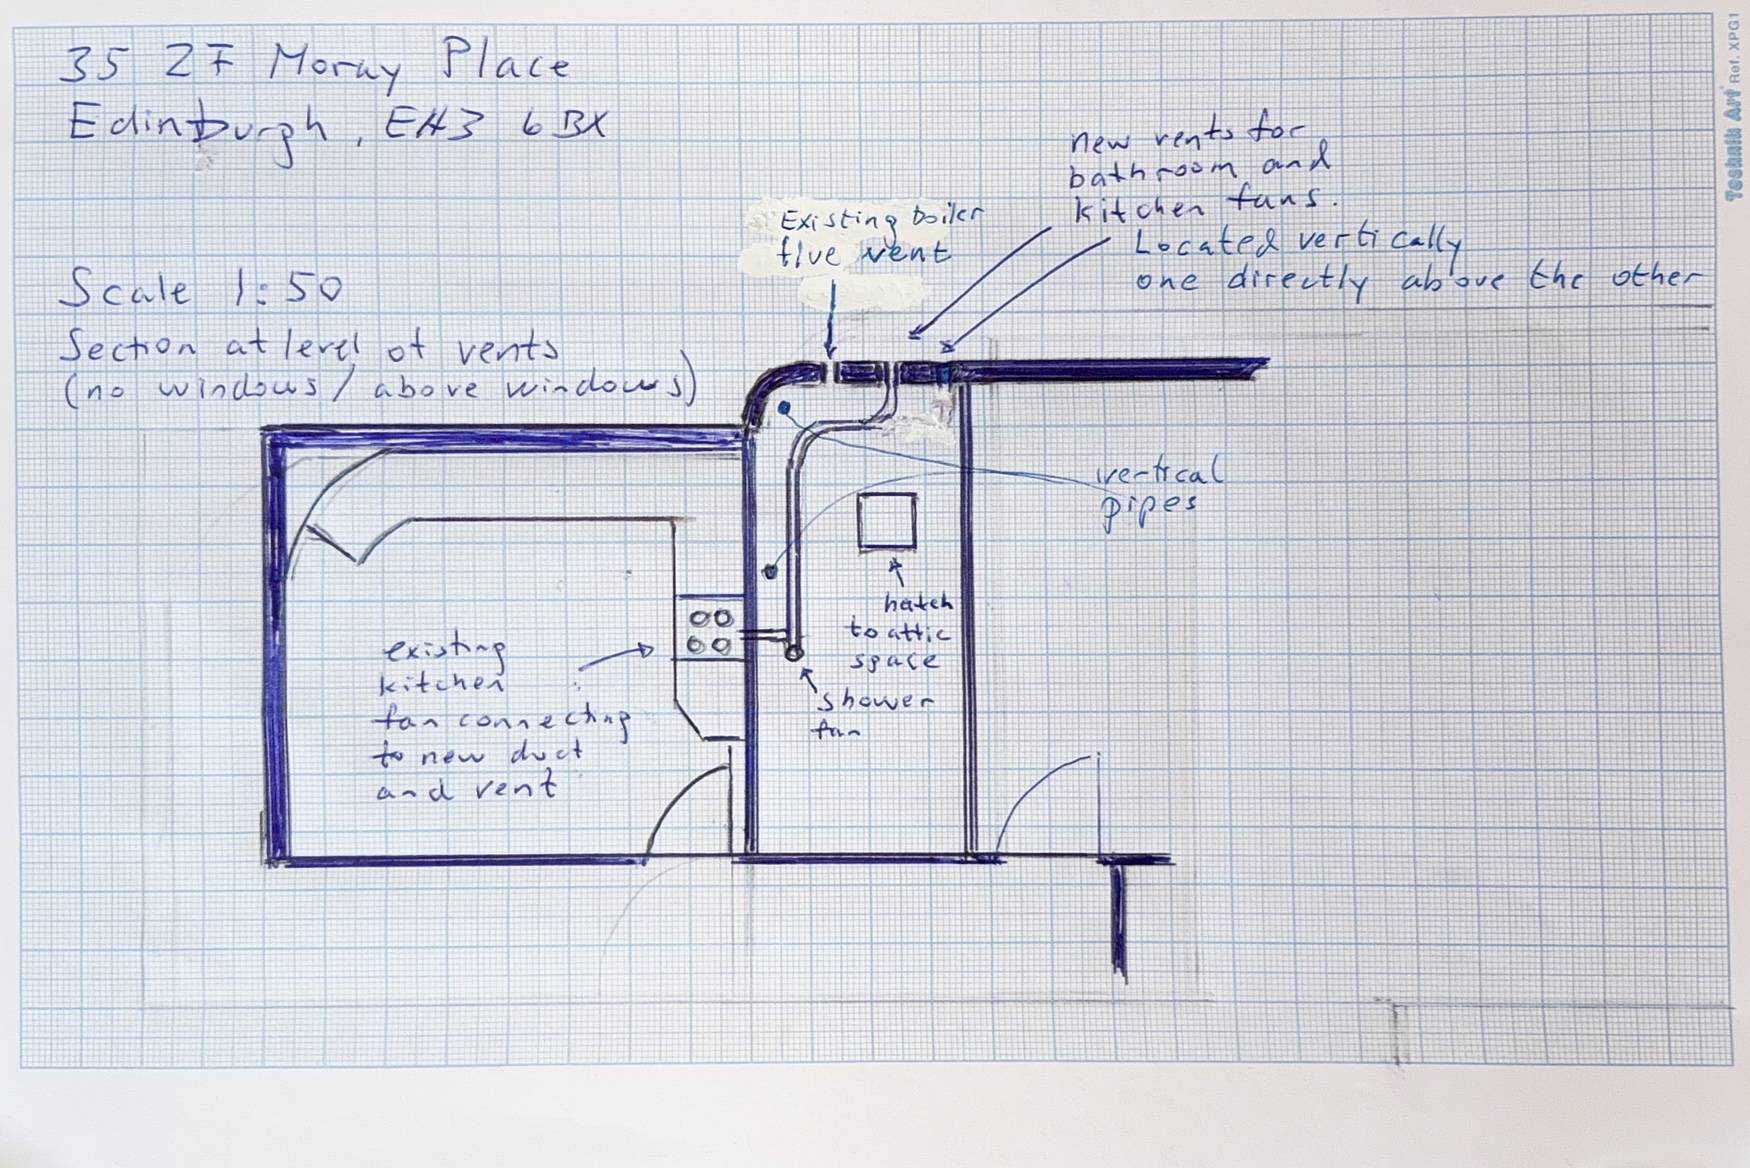 35 2F Moray Place
Edinburgh, EH3 6BX
Scale 1:50
Section at level of vents
(no windows / above windows)
Existing boiler
flue vent
new vents for
bathroom and
kitchen fans.
Located vertically
one directly above the other
vertical
pipes
hatch
to attic
space
shower
fan
existing
kitchen
fan connecting
to new duct
and vent
Technik Art Ref. XPG1